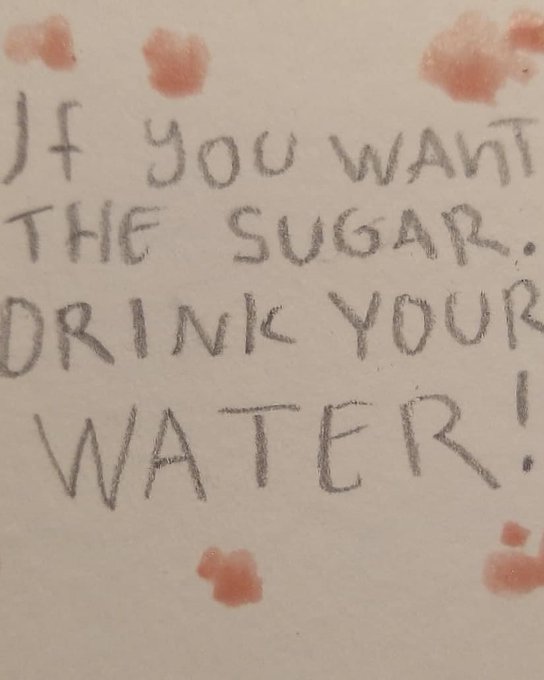 If you WANT
THE SUGAR.
DRINK YOUR
WATER!